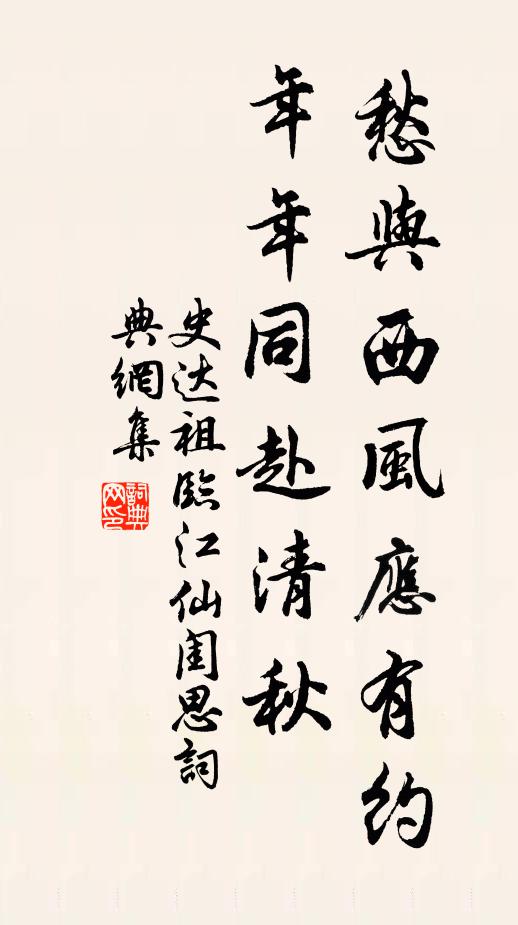 愁與西風應有約
年年同赴清秋
史达祖臨江仙閨思詞
典網集
詞典网印